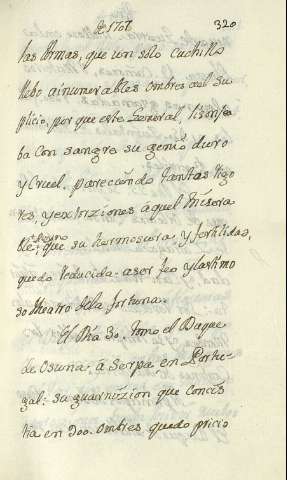 1707
320
las Armas, que un solo Cuchillo
llebo a innumerables ombres al su
plicio, porque este General, lisonjea
ba con sangre su genio duro
y Cruel. pareciendo tantas rigo
res, y extorziones a quel misera
ble Reyno, que su hermosura y fertilidad,
quedo reducida a ser feo y lastimo
so theatro de la fortuna.
El Dia 30. tomo el Duque
de Osuna, a Serpa en Portu-
gal: su guarnizion que consis
tia en 900. ombres, quedo pricio